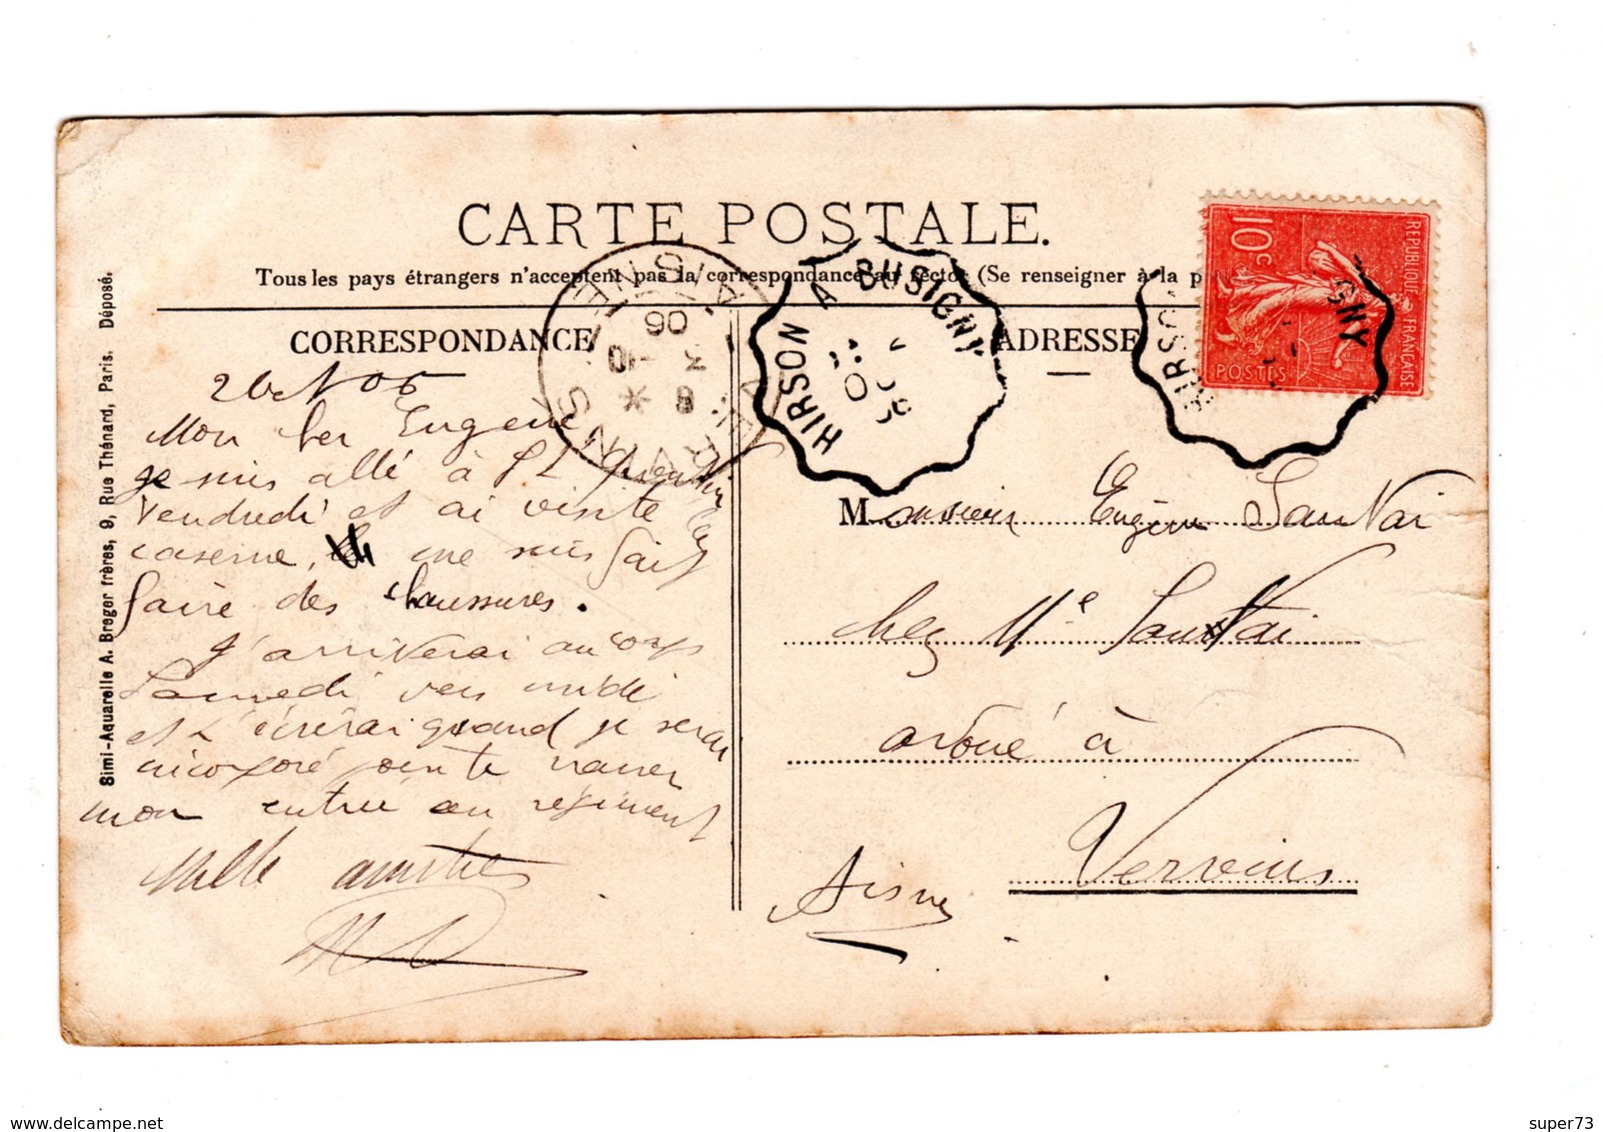 CARTE POSTALE.
Tous les pays étrangers n'acceptent pas la correspondance au recto. (Se renseigner à la
CORRESPONDANCE
ADRESSE
2 Oct 06
Mon cher Eugène
je suis allé à St Quentin
Vendredi et ai visité la
caserne, me suis fait
faire des chaussures.
J'arriverai au corps
Samedi vers midi
et t'écrirai quand je serai
incorporé pour te narrer
mon entrée au régiment
Mille amitiés
Monsieur Eugène
chez Me
avoué à
Vervins
Aisne
Simi-Aquarelle A. Breger frères, 9, Rue Thénard, Paris. Déposé.
HIRSON A BUSIGNY
VERVINS
AISNE
8
10
06
HIRSO
GNY
10c
REPUBLIQUE FRANÇAISE
POSTES
super73